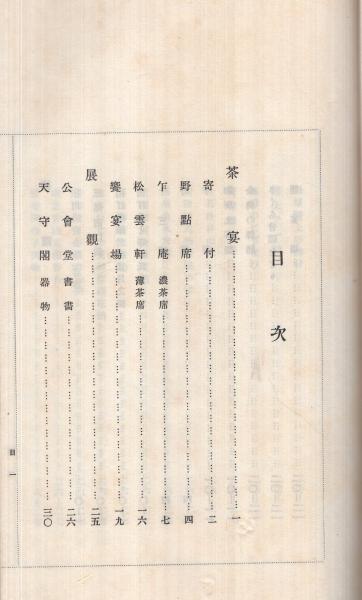 目次
茶宴……一
寄付……二
野點席……四
乍三庵 濃茶席……七
松雲軒 薄茶席……一六
饗宴場……一九
展觀……二五
公會堂書畫……二六
天守閣器物……三〇
目 一